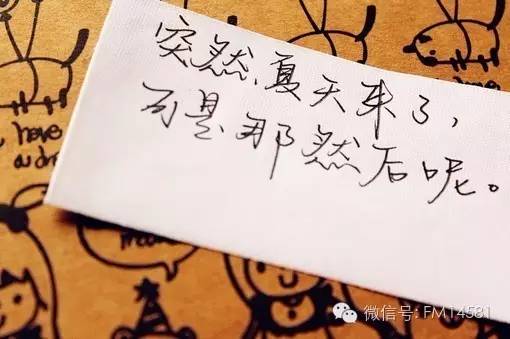 突然、夏天来了，
可是那然后呢。
have
微信号: FM14581